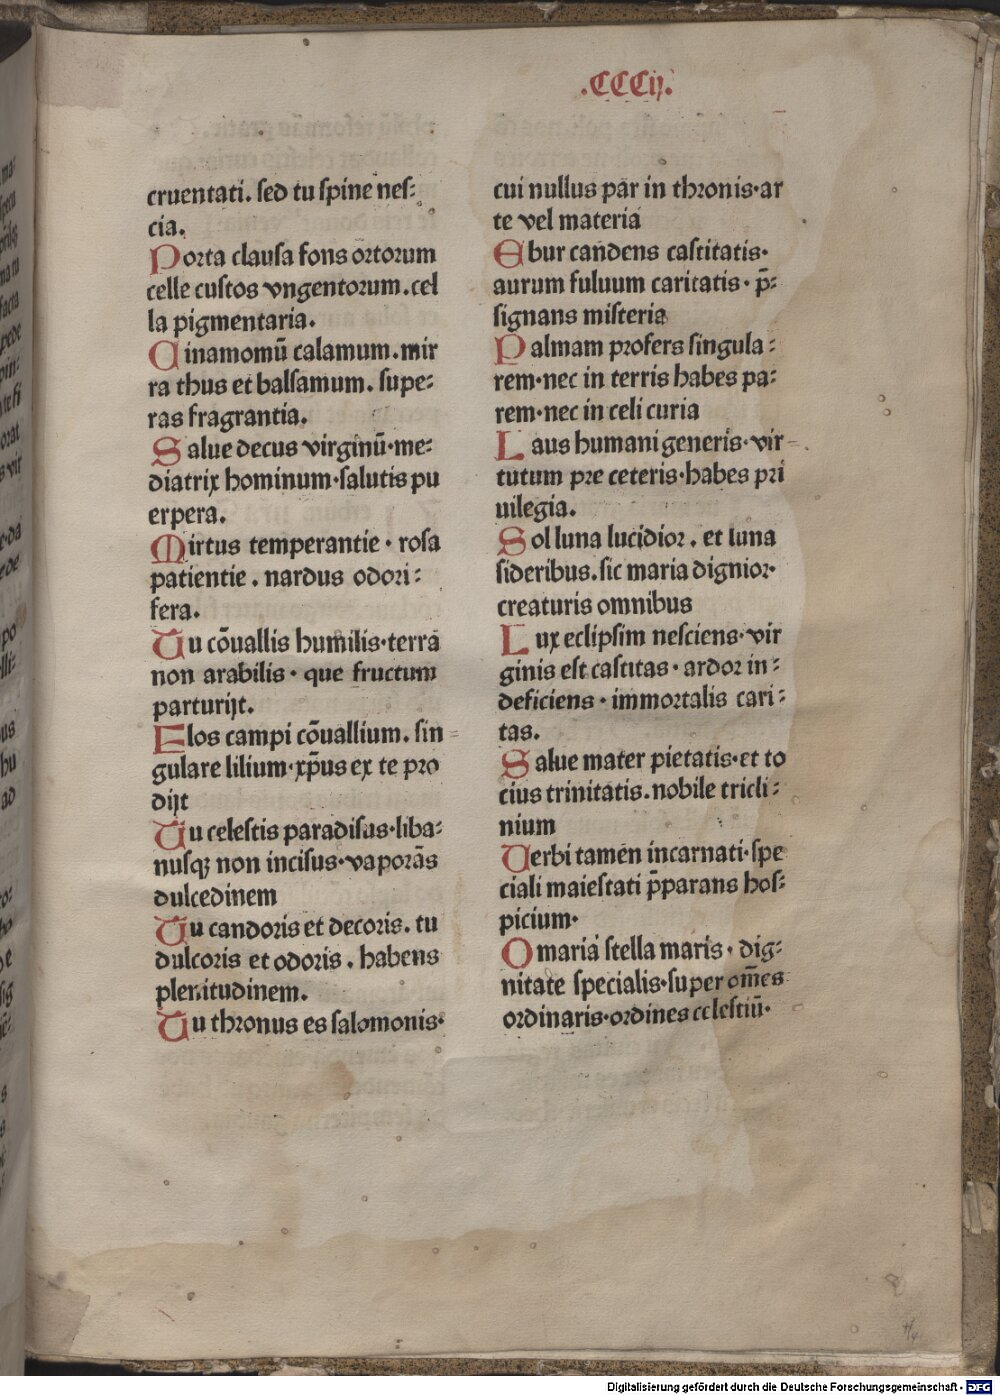 .CCCij.
cruentati. sed tu spine nes⸗
cia.
Porta clausa fons ortorum
celle custos vngentorum.cel
la pigmentaria.
Cinamomū calamum.mir
ra thus et balsamum. supe⸗
ras fragrantia.
Salue decus virginū·me⸗
diatrix hominum·salutis pu
erpera.
Mirtus temperantie · rosa
patientie . nardus odori⸗
fera.
Tu cōuallis humilis·terra
non arabilis · que fructum
parturijt.
Flos campi cōuallium. sin⸗
gulare lilium·xp̄us ex te pro
dijt
Tu celestis paradisus·liba⸗
nusqꝫ non incisus·vaporās
dulcedinem
Tu candoris et decoris. tu
dulcoris et odoris . habens
plenitudinem.
Tu thronus es salomonis·
cui nullus par in thronis·ar
te vel materia
Ebur candens castitatis·
aurum fuluum caritatis · p̄⸗
signans misteria
Palmam profers singula⸗
rem·nec in terris habes pa⸗
rem·nec in celi curia
Laus humani generis·vir⸗
tutum pre ceteris·habes pri
uilegia.
Sol luna lucidior . et luna
sideribus.sic maria dignior·
creaturis omnibus
Lux eclipsim nesciens·vir
ginis est castitas · ardor in⸗
deficiens · immortalis cari⸗
tas.
Salue mater pietatis·et to
cius trinitatis.nobile tricli⸗
nium
Verbi tamen incarnati·spe
ciali maiestati p̄parans hos⸗
picium·
O maria stella maris · dig⸗
nitate specialis·super om̄es
ordinaris·ordines celestiū·
Digitalisierung gefördert durch die Deutsche Forschungsgemeinschaft - DFG